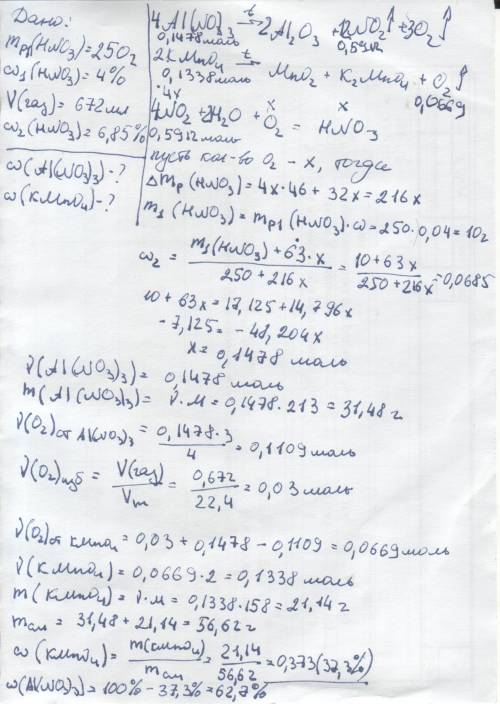 Дано:
mр1(HNO3)=250г
ω1(HNO3)=4%
V(газ)=672мл
ω2(HNO3)=6,85%
ω(Al(NO3)3)-?
ω(KMnO4)-?
4Al(NO3)3 t→ 2Al2O3 + 12NO2↑ + 3O2↑
0,1478моль 0,5912
2KMnO4 t→ MnO2 + K2MnO4 + O2↑
0,1338моль 0,0669
4x x x
4NO2 + 2H2O + O2 = HNO3
0,5912моль
пусть кол-во O2 - x, тогда
Δmр(HNO3) = 4x·46 + 32x = 216x
m1(HNO3) = mр1(HNO3)·ω = 250·0,04 = 10г
ω2 = (m1(HNO3) + 63·x)/(250 + 216x) = (10 + 63x)/(250 + 216x) = 0,0685
10 + 63x = 17,125 + 14,796x
-7,125 = -48,204x
x = 0,1478 моль
ν(Al(NO3)3) = 0,1478 моль
m(Al(NO3)3) = ν·M = 0,1478·213 = 31,48 г
ν(O2)от Al(NO3)3 = 0,1478·3/4 = 0,1109 моль
ν(O2)изб = V(газ)/Vm = 0,672/22,4 = 0,03 моль
ν(O2)от KMnO4 = 0,03 + 0,1478 - 0,1109 = 0,0669 моль
ν(KMnO4) = 0,0669·2 = 0,1338 моль
m(KMnO4) = ν·M = 0,1338·158 = 21,14 г
mсм = 31,48 + 21,14 = 56,62 г
ω(KMnO4) = m(KMnO4)/mсм = 21,14/56,62 = 0,373 (37,3%)
ω(Al(NO3)3) = 100% - 37,3% = 62,7%